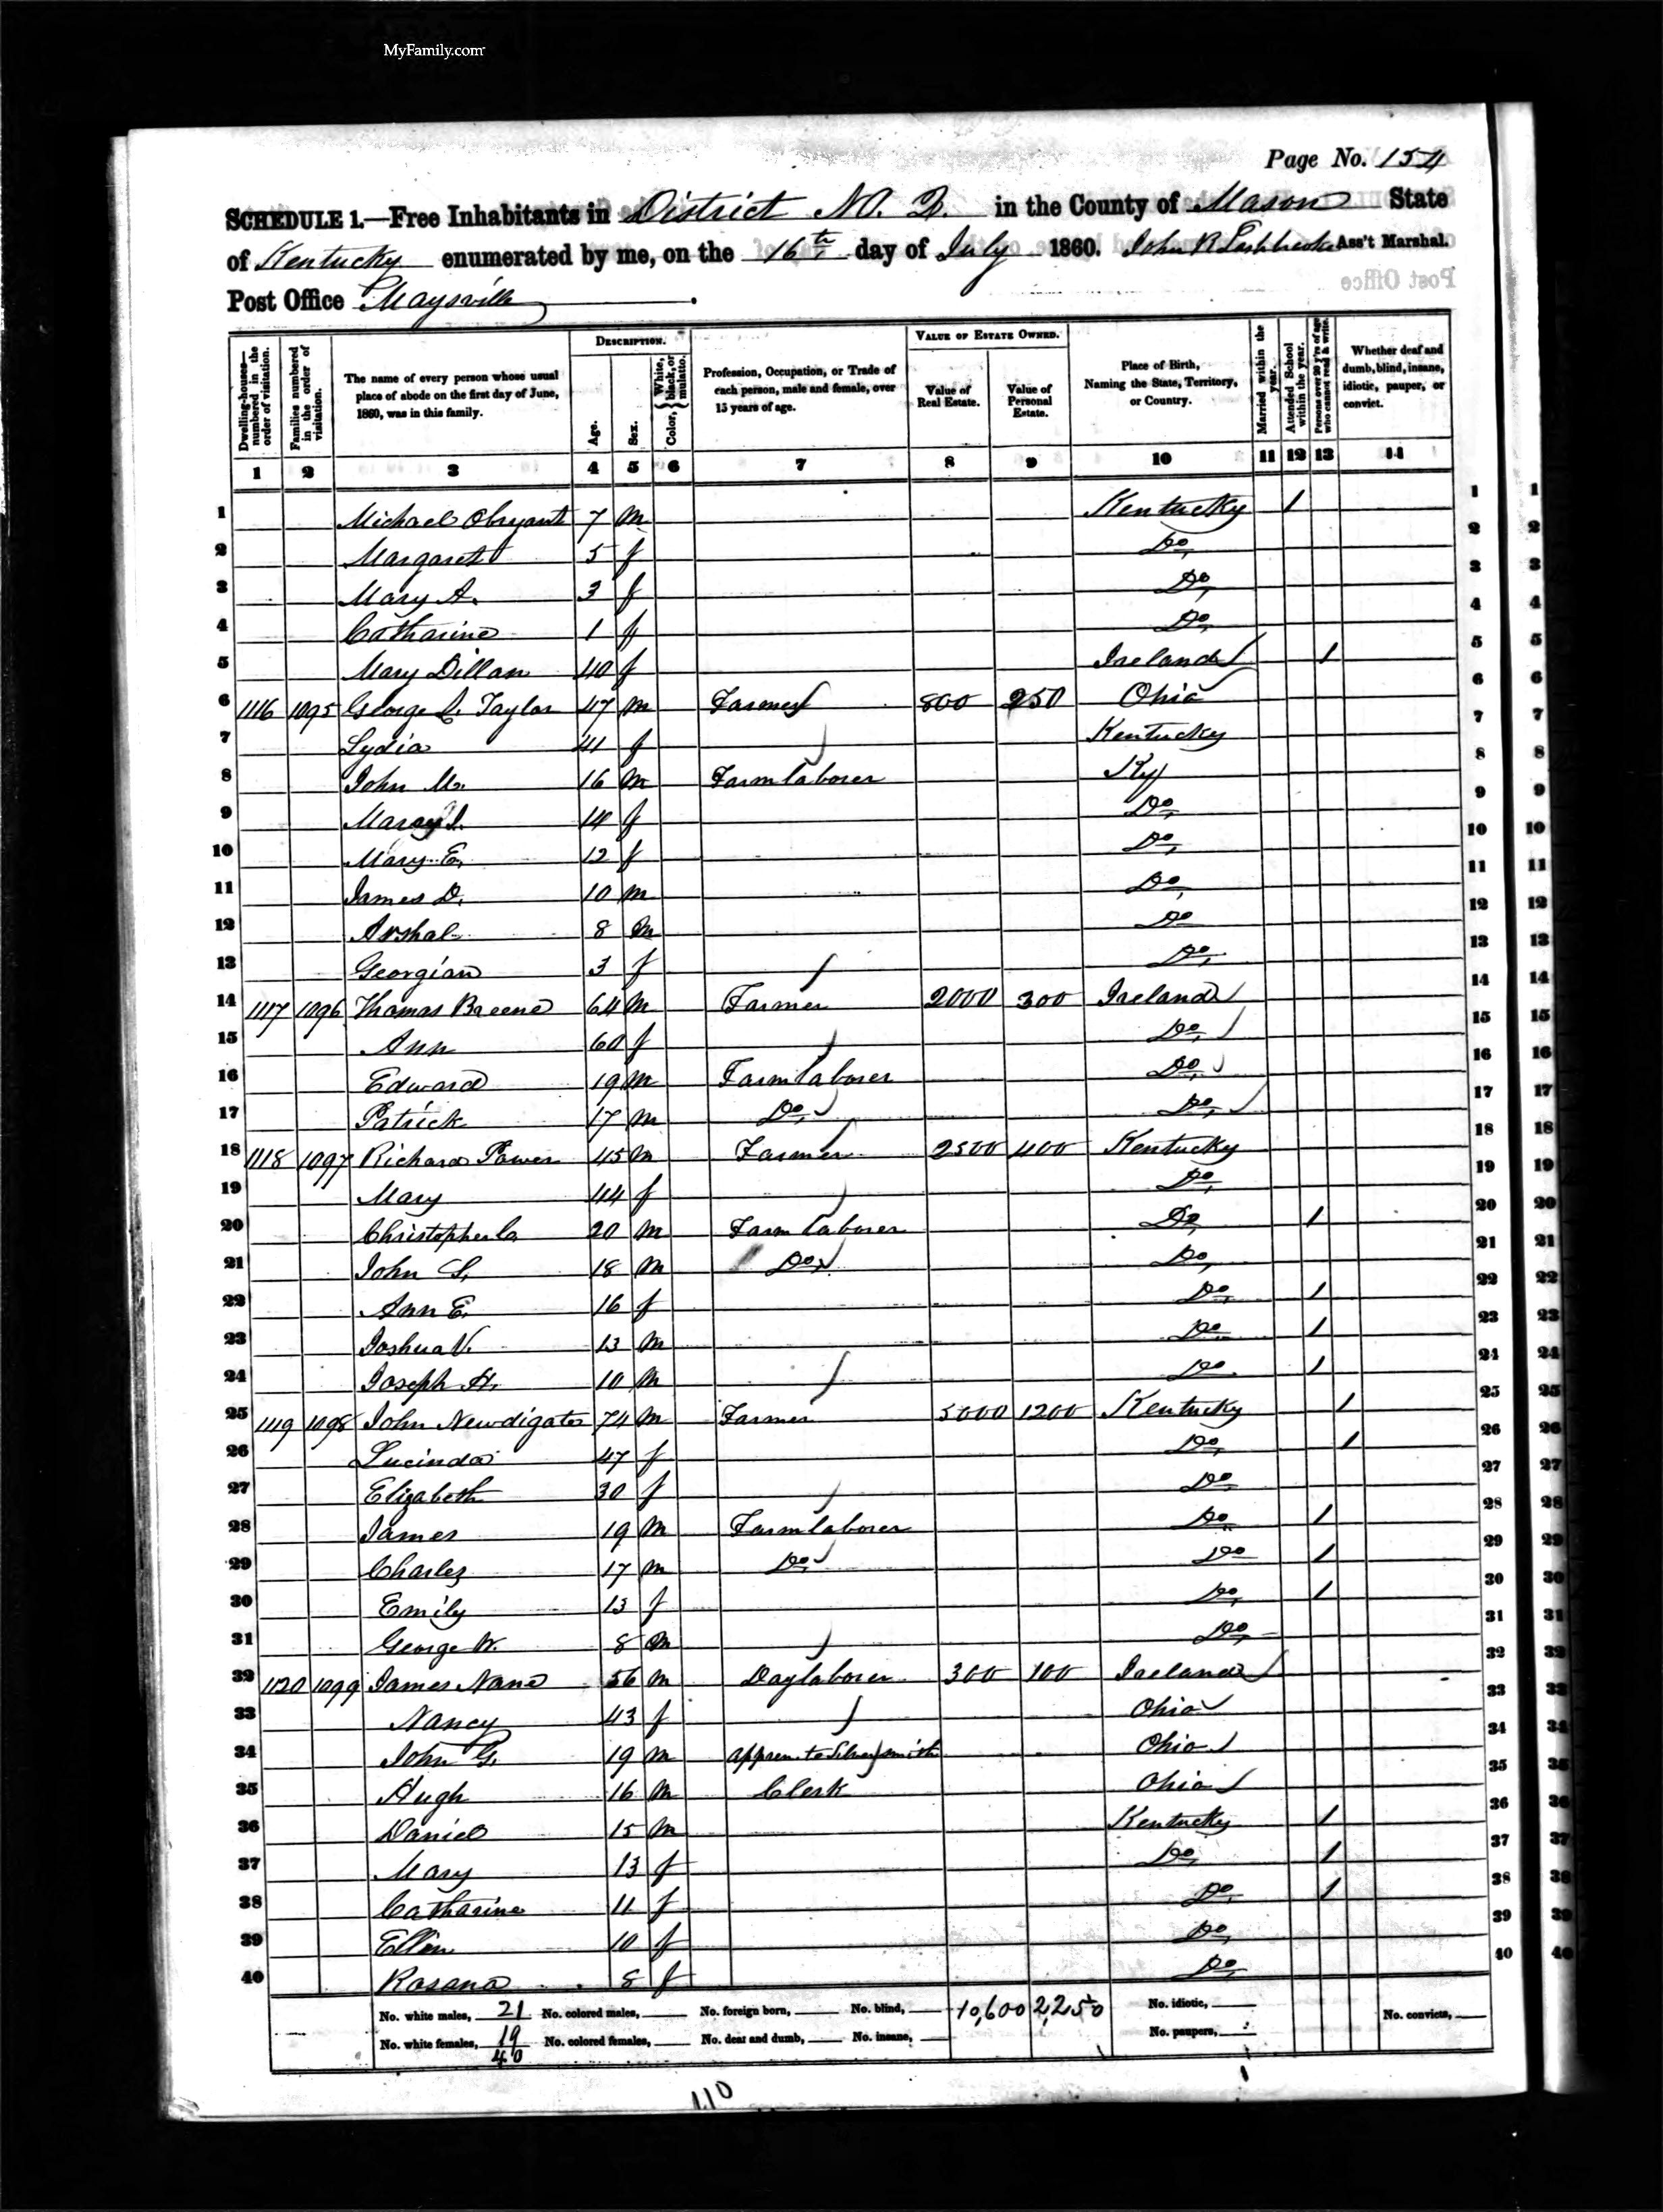 MyFamily.com
Page No. 154
SCHEDULE 1.—Free Inhabitants in District No. 2. in the County of Mason State
of Kentucky enumerated by me, on the 16th day of July 1860. John R Ass't Marshal.
Post Office Maysville
Dwelling-houses—numbered in the order of visitation.
Families numbered in the order of visitation.
The name of every person whose usual place of abode on the first day of June, 1860, was in this family.
DESCRIPTION.
Age.
Sex.
Color, { White, black, or mulatto.
Profession, Occupation, or Trade of each person, male and female, over 15 years of age.
VALUE OF ESTATE OWNED.
Value of Real Estate.
Value of Personal Estate.
Place of Birth, Naming the State, Territory, or Country.
Married within the year.
Attended School within the year.
Persons over 20 y'rs of age who cannot read & write.
Whether deaf and dumb, blind, insane, idiotic, pauper, or convict.
1 2 3 4 5 6 7 8 9 10 11 12 13 14
1 Michael Obryant 7 m Kentucky 1 1 1
2 Margaret 5 f Do, 2 2
3 Mary A. 3 f Do, 3 3
4 Catharine 1 f Do, 4 4
5 Mary Dillan 40 f Ireland 1 5 5
6 1116 1095 George L. Taylor 47 m Farmer 800 250 Ohio 6 6
7 Lydia 41 f Kentucky 7 7
8 John M. 16 m Farm laborer Ky 8 8
9 14 f Do, 9 9
10 Mary E. 12 f Do, 10 10
11 James D. 10 m Do, 11 11
12 8 m Do 12 12
13 Georgian 3 f Do, 13 13
14 1117 1096 Thomas Breene 64 m Farmer 2000 300 Ireland 14 14
15 Ann 60 f Do, 15 15
16 Edward 19 m Farm laborer Do, 16 16
17 Patrick 17 m Do, Do, 17 17
18 1118 1097 Richard Power 45 m Farmer 2500 400 Kentucky 18 18
19 Mary 44 f Do, 19 19
20 Christopher C. 20 m Farm laborer Do, 1 20 20
21 John S. 18 m Do, Do, 21 21
22 Ann E. 16 f Do, 1 22 22
23 Joshua V. 13 m Do, 1 23 23
24 Joseph H. 10 m Do. 1 24 24
25 1119 1098 John Newdigate 74 m Farmer 5000 1200 Kentucky 1 25 25
26 Lucinda 47 f Do, 1 26 26
27 Elizabeth 30 f Do 27 27
28 James 19 m Farm laborer Do, 1 28 28
29 Charles 17 m Do, Do 1 29 29
30 Emily 13 f Do, 1 30 30
31 George W. 8 m Do, 31 31
32 1120 1099 James Nane 56 m Day laborer 300 100 Ireland 32 32
33 Nancy 43 f Ohio 33 33
34 John G. 19 m appren. to Silver smith Ohio 34 34
35 Hugh 16 m Clerk Ohio 35 35
36 Daniel 15 m Kentucky 1 36 36
37 Mary 13 f Do, 1 37 37
38 Catharine 11 f Do, 1 38 38
39 Ellen 10 f Do, 39 39
40 Rosana 8 f Do, 40 40
No. white males, 21 No. colored males, No. foreign born, No. blind, 10,600 2,250 No. idiotic, No. convicts,
No. white females, 19 No. colored females, No. deaf and dumb, No. insane, No. paupers,
40
110